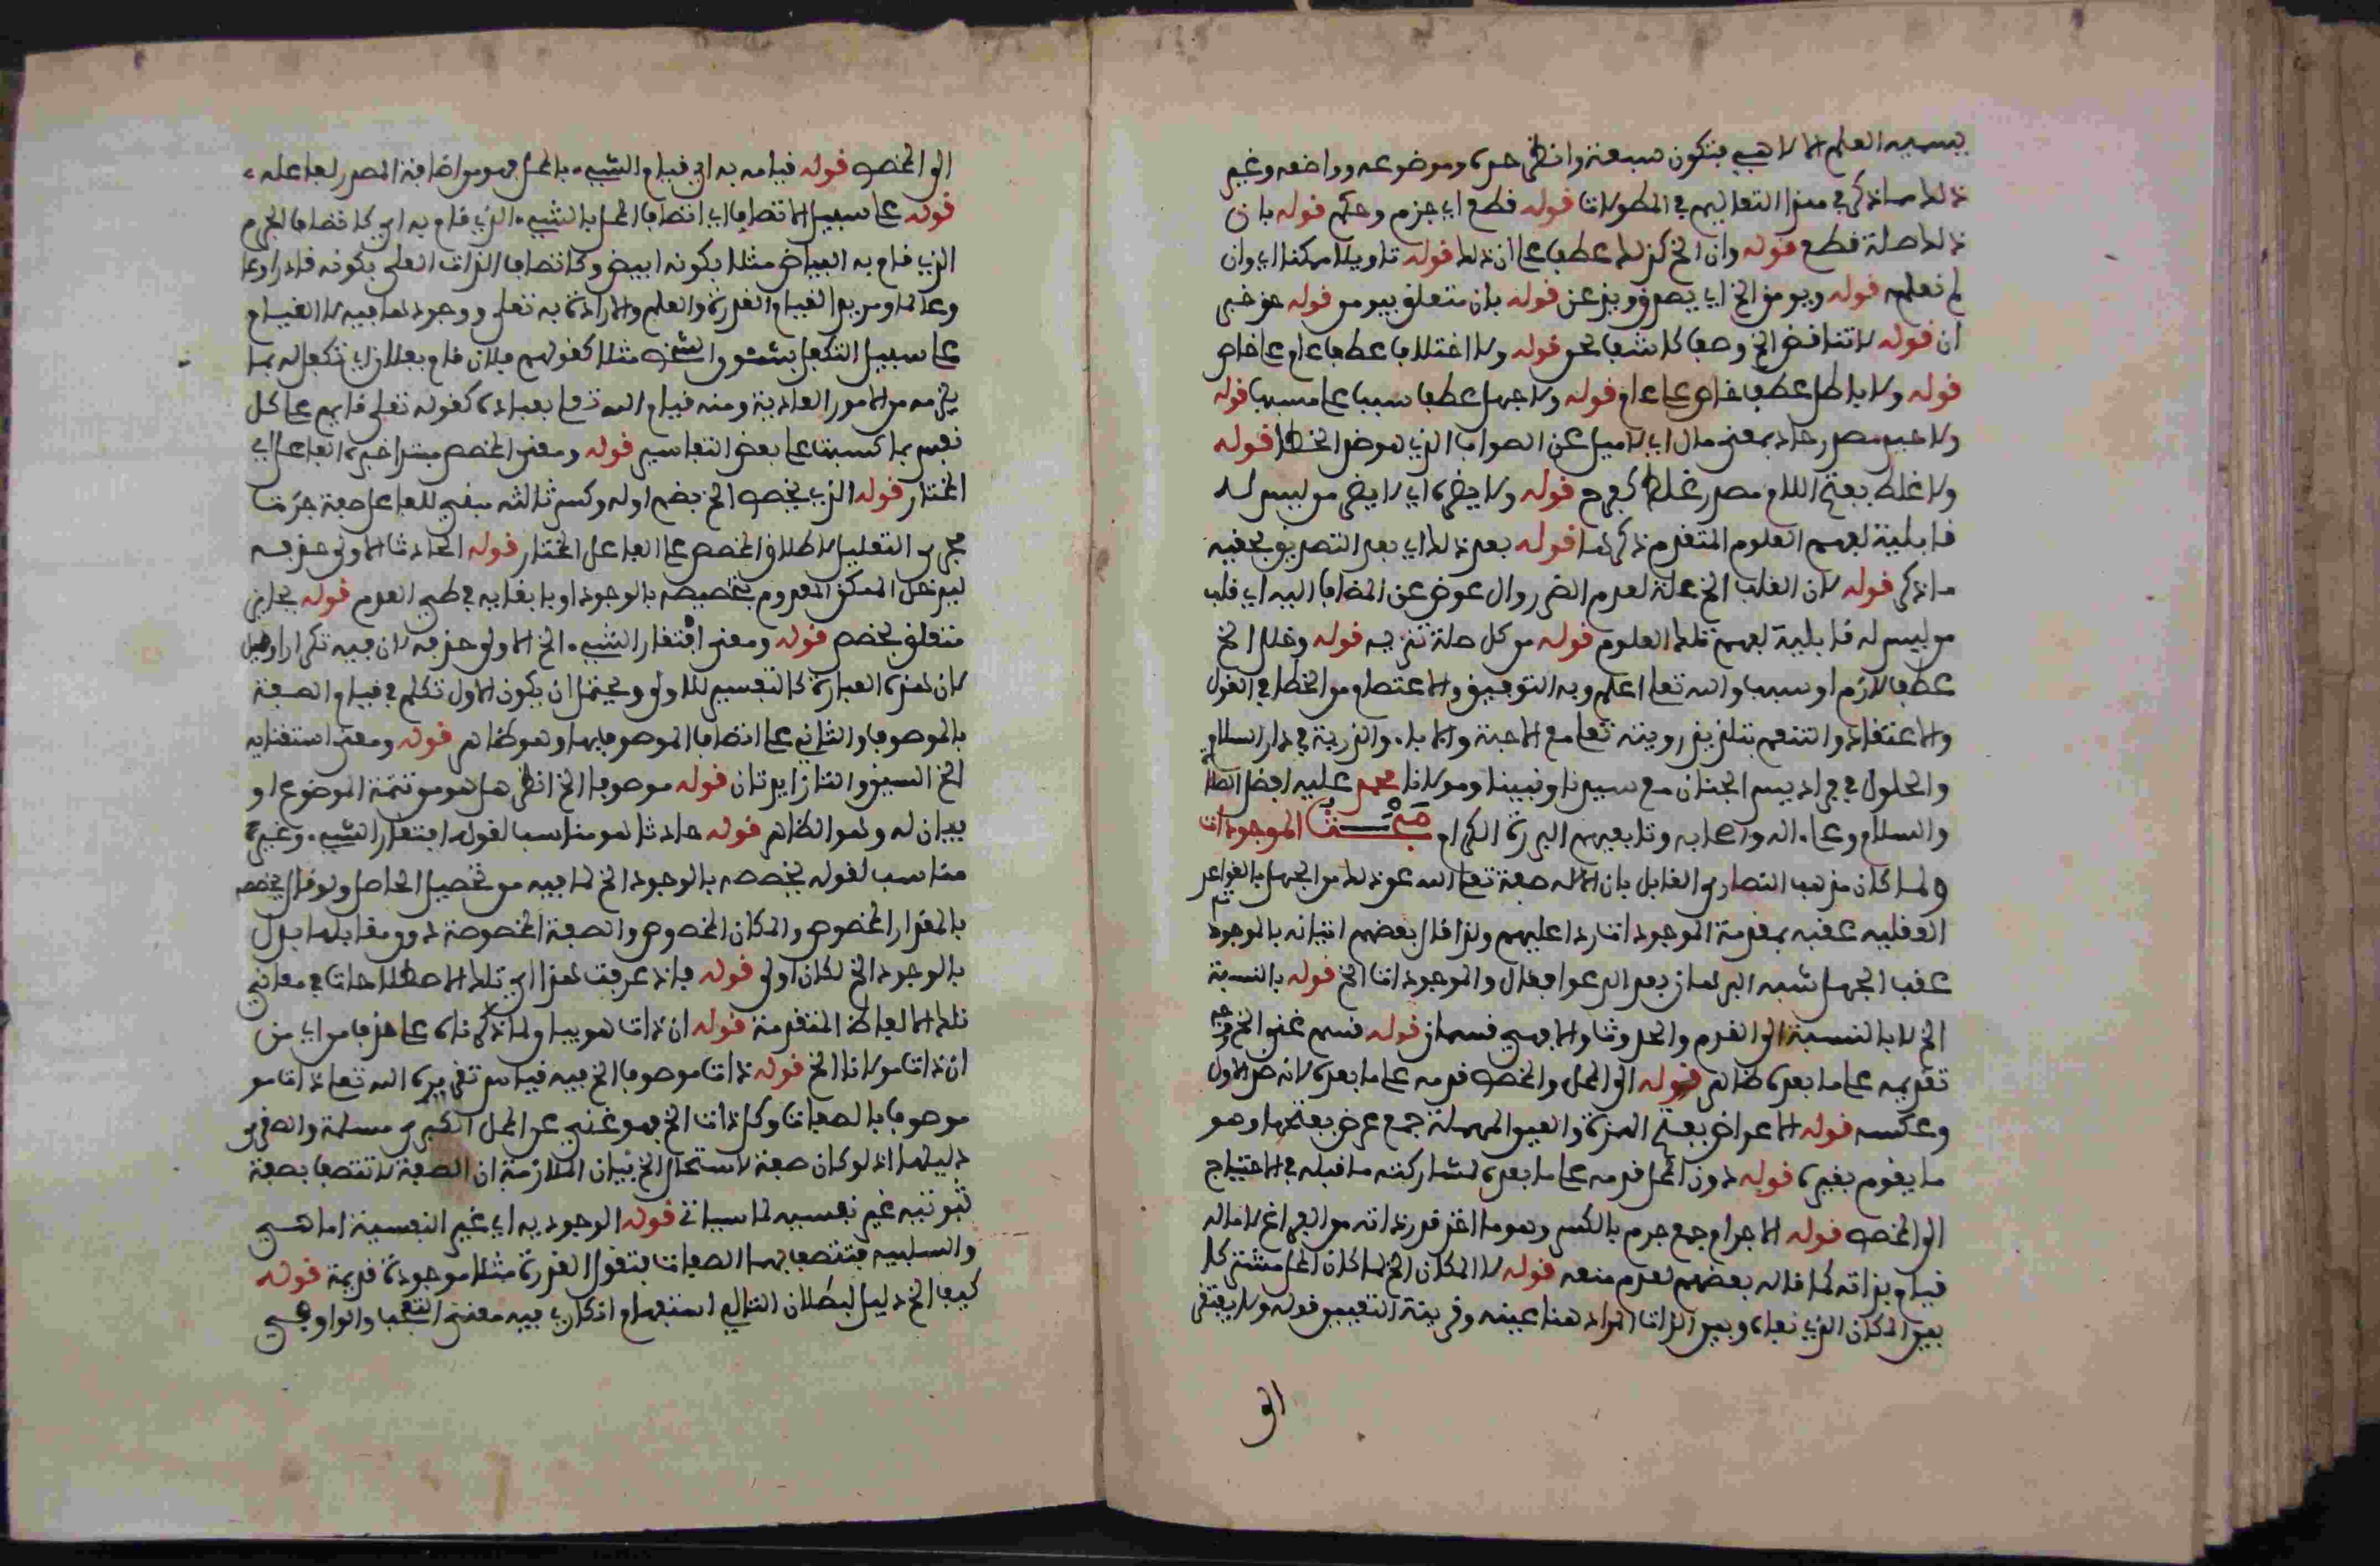 يسميه العلم الالاهي فتكون سبعة وانظر حده وموضوعه وواضعه وغير
ذلك مما ذكر في هذا التعاليم في المطولات قوله قطع اي جزم وحكم قوله بان
ذلك صلة قطع قوله وان الخ كذلك عطف على ان ذلك قوله تاويلا ممكنا اي وان
لم نعلمه قوله ويومن الخ اي يصدق ويذعن قوله بان متعلق بيومن قوله حق خبر
ان قوله لا تناقض الخ وصف كاشف لحق قوله ولا اختلاف عطف عام على خاص
قوله ولا باطل عطف خاص على عام قوله ولا جهل عطف سبب على مسبب قوله
ولا حيد مصدر حاد بمعنى مال اي لا ميل عن الصواب الذي هو ضد الخطا قوله
ولا غلط بفتح اللام مصدر غلط كفرح قوله ولا يضره اي لا يضر من ليس له
قابلية لفهم العلوم المتقدم ذكرها قوله بعد ذلك اي بعد التصديق بحقية
ما ذكر قوله لان القلب الخ علة لعدم الضر وال عوض عن المضاف اليه اي قلب
من ليس له قابلية لفهم تلك العلوم قوله من كل صلة تنزيه قوله وخلل الخ
عطف لازم او سبب والله تعلى اعلم وبه التوفيق والاعتصام من الخطا في القول
والاعتقاد والتنعم بتلذيذ رويته تعلى مع الاحبة والاباء والذرية في دار السلام
والحلول في فراديس الجنان مع سيدنا ونبينا ومولانا محمد عليه افضل الصلاة
والسلام وعلى اله واصحابه وتابعيهم البررة الكرام الموجودات
ولما كان مذهب النصارى القايل بان الاله صفة تعلى الله عن ذلك من الجهل بالقواعد
العقلية عقبه بمقدمة الموجودات ردا عليهم ولذا قال بعضهم اتيانه بالموجود
عقب الجهل شبه البرهان بعد الدعوا فقال والموجودات الخ قوله بالنسبة
الخ لا بالنسبة الى القدم والحدوث والا فهي قسمان قوله قسم غني الخ وجه
تقديمه على ما بعده ظاهر قوله الى المحل والمخصص قدمه على ما بعده لانه ضد الاول
وعكسه قوله الاعراض بفتح الهمزة والعين المهملة جمع عرض بفتحها وهو
ما يقوم بغيره قوله دون المحل قدمه على ما بعده لمشاركته ما قبله في الاحتياج
الى المخصص قوله الاجرام جمع جرم بالكسر وهو ما اخذ قدر ذاته من الفراغ لا ما له
قيام بذاته كما قاله بعضهم لعدم منعه قوله لا المكان الخ لما كان المحل مشتركا
بين المكان الذي نفاه وبين الذات المراد هنا عينه وقرينة التعيين قوله ولا يفتقر
الى
الى المخصص قوله قيامه به اي قيام الشيء بالمحل فهو من اضافة المصدر لفاعله
قوله على سبيل الاتصاف اي اتصاف المحل بالشيء الذي قام به اي كاتصاف الجرم
الذي قام به البياض مثلا بكونه ابيض وكاتصاف الذات العلي بكونه قادرا
وعالما ومريدا لقيام القدرة والعلم والارادة به تعلى ووجودها فيه لا القيام
على سبيل التكفل مثلا كقولهم فلان قام بفلان اي تكفل له بما
يلزمه من الامور العادية ومنه قيام الله تعلى بعباده كقوله تعلى قايم على كل
نفس بما كسبت على بعض التفاسير قوله ومعنى المخصص مبتدا خبره الفاعل اي
المختار قوله الذي يخصص الخ بضم اوله وكسر ثالثه مبني للفاعل صفة جرت
مجرى التعليل لاطلاق المخصص على الفاعل المختار قوله الحادث الاولى حذفه
ليدخل الممكن المعدوم بتخصيصه بالوجود او بابقايه في طي العدم قوله بجايز
متعلق بخصص قوله ومعنى افتقار الشيء الخ الاولى حذفه لان فيه تكرارا وقيل
لان هذه العبارة كالتفسير للاولى ويحتمل ان يكون الاول تكلم في قيام الصفة
بالموصوف والثاني على اتصاف الموصوف بها وهو ظاهر قوله ومعنى استغنايه
الخ السين والتاء زايدتان قوله موصوفا الخ انظر هل هو من تتمة الموضوع او
بيان له وهو الظاهر قوله حادثا هو مناسب لقوله افتقار الشيء وغير
مناسب لقوله يخصصه بالوجود الخ لما فيه من تحصيل الحاصل ولو قال يخصصه
بالمقدار المخصوص والمكان المخصوص والصفة المخصوصة دون مقابلها بدل
بالوجود الخ لكان اولى قوله فاذ عرفت هذا اي تلك الاصطلاحات في معاني
تلك الالفاظ المتقدمة قوله ان ذات هو بيان لما ذكرناه على حذف من اي من
ان ذات مولانا الخ قوله ذات موصوف الخ فيه قياس تقريره الله تعلى ذات
موصوف بالصفات وكل ذات الخ فهو غني عن المحل الكبرى مسلمة والصغرى
دليلها اذ لو كان صفة لاستحال الخ بيان الملازمة ان الصفة لا تتصف بصفة
ثبوتية غير نفسية لما سياتي قوله الوجودية اي غير النفسية اما هي
والسلبية فتتصف بهما الصفات فتقول القدرة مثلا موجودة قديمة قوله
كيف الخ دليل لبطلان التالي استفهام انكاري فيه معنى التعجب والواو في